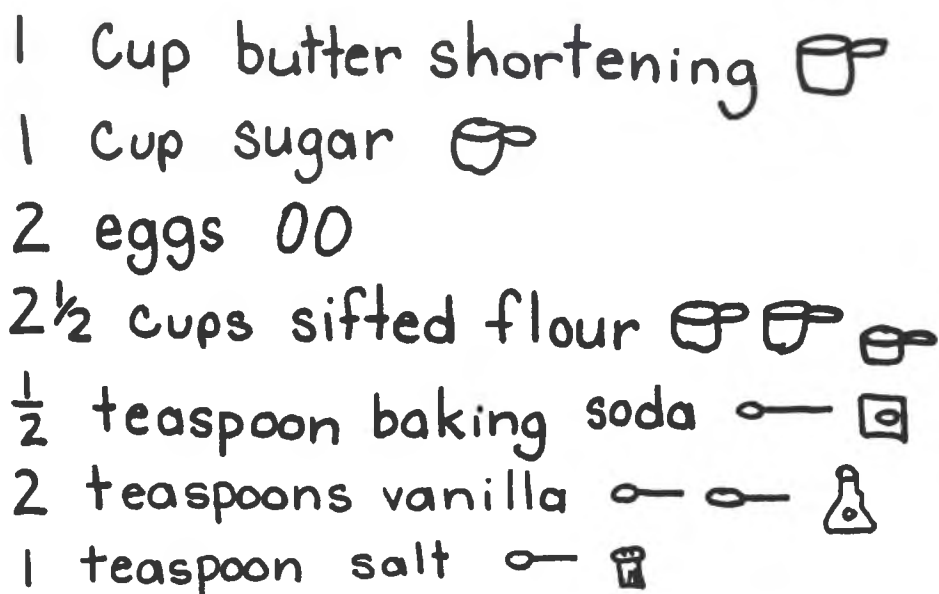 1 Cup butter shortening
1 Cup sugar
2 eggs
2½ cups sifted flour
½ teaspoon baking soda
2 teaspoons vanilla
1 teaspoon salt